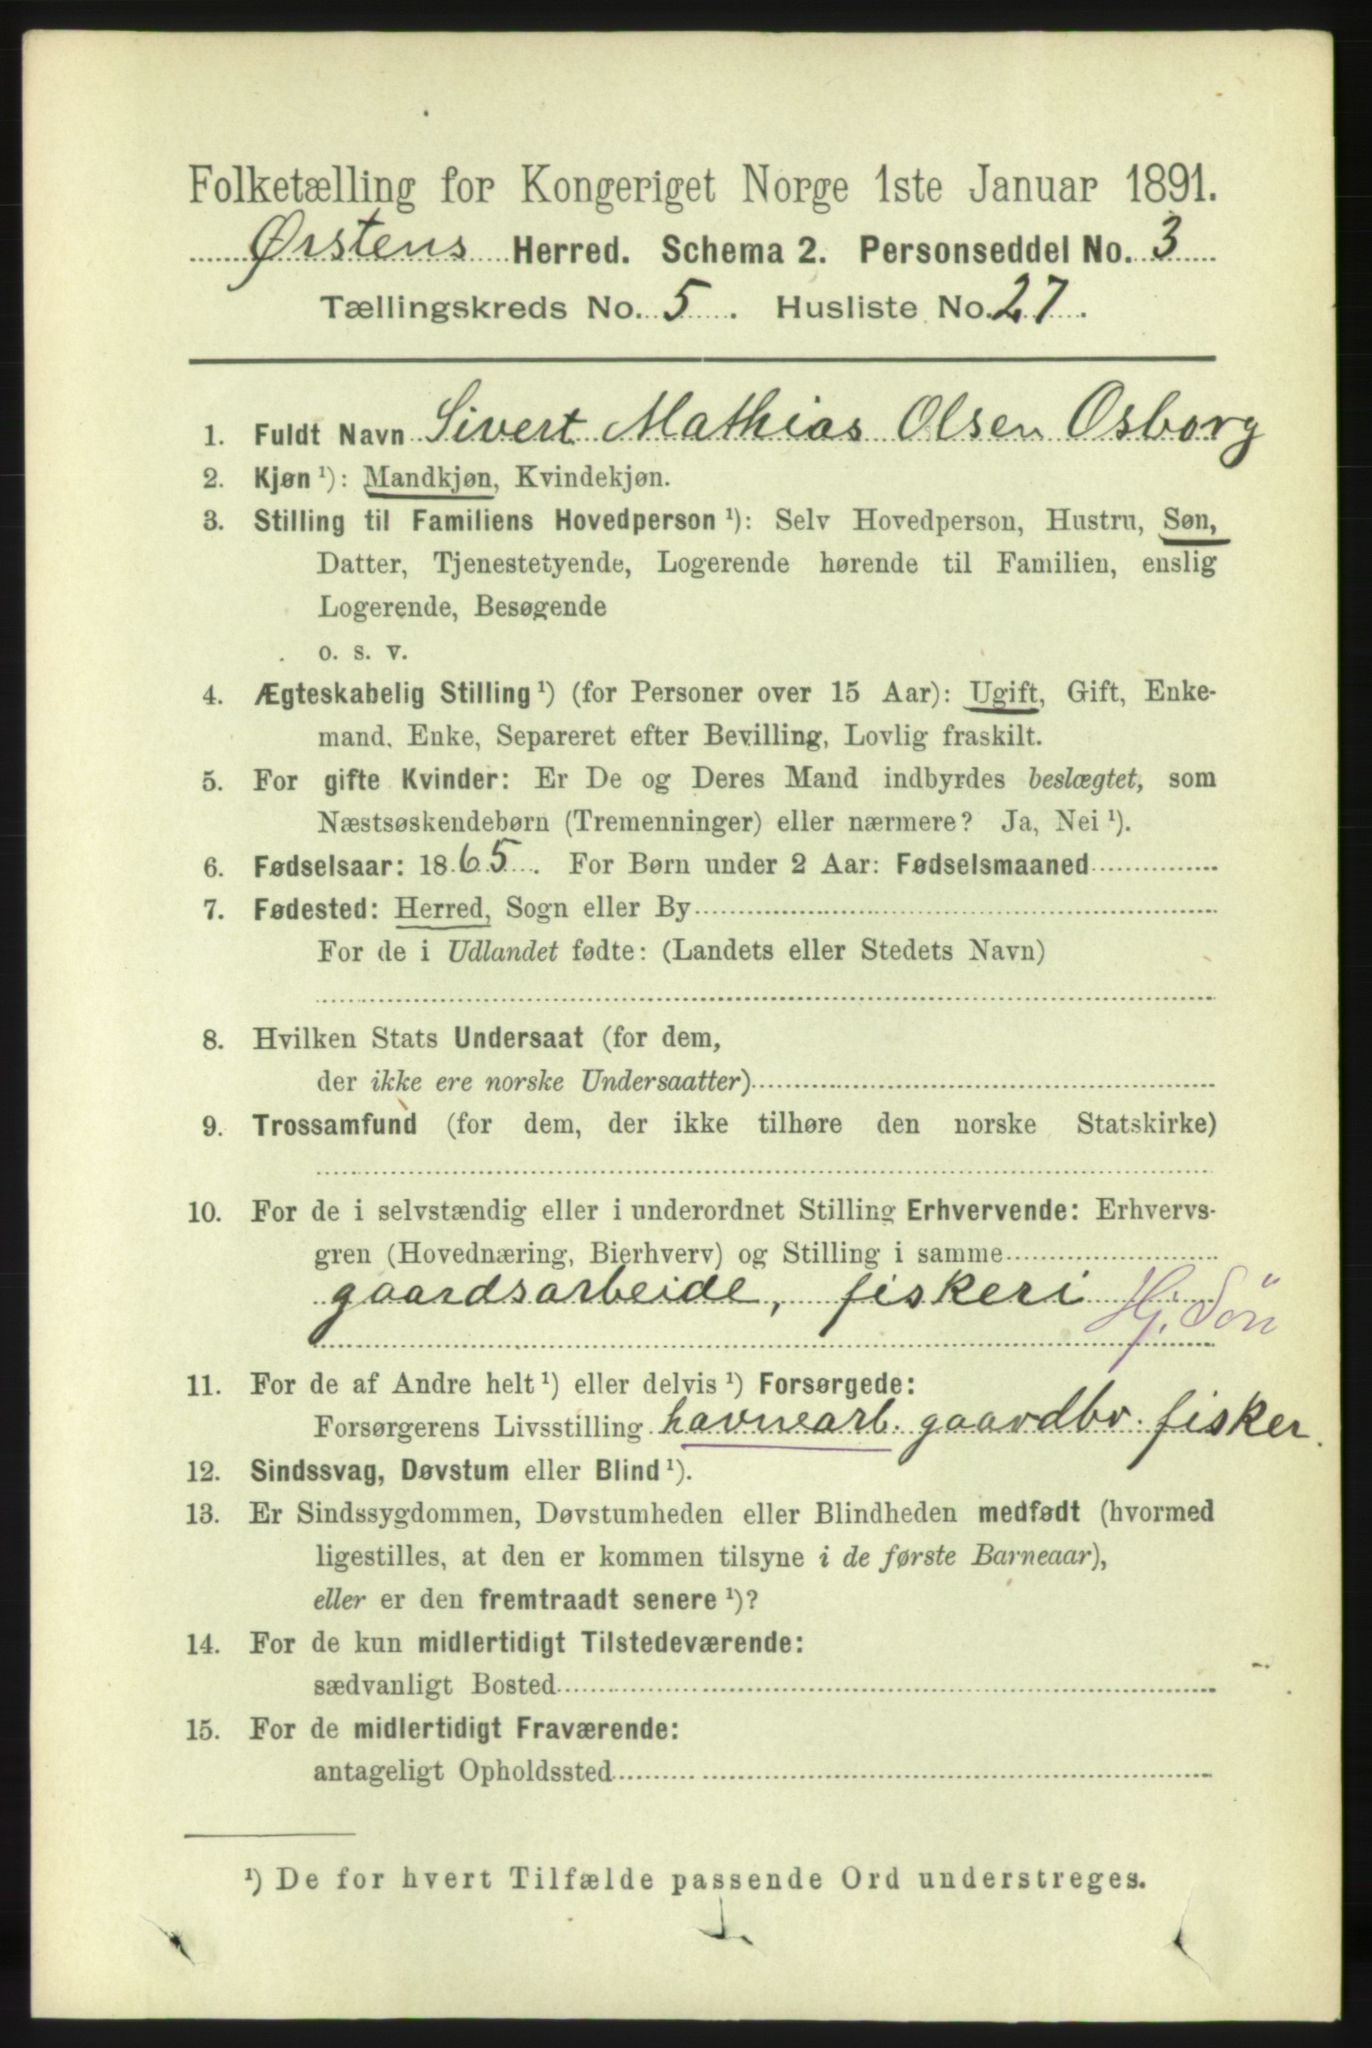 Folketælling for Kongeriget Norge 1ste Januar 1891.
Ørstens Herred. Schema 2. Personseddel No. 3
Tællingskreds No. 5. Husliste No. 27.
1. Fuldt Navn Sivert Mathias Olsen Osborg
2. Kjøn ¹): Mandkjøn, Kvindekjøn.
3. Stilling til Familiens Hovedperson ¹): Selv Hovedperson, Hustru, Søn,
Datter, Tjenestetyende, Logerende hørende til Familien, enslig
Logerende, Besøgende
o. s. v.
4. Ægteskabelig Stilling ¹) (for Personer over 15 Aar): Ugift, Gift, Enke-
mand, Enke, Separeret efter Bevilling, Lovlig fraskilt.
5. For gifte Kvinder: Er De og Deres Mand indbyrdes beslægtet, som
Næstsøskendebørn (Tremenninger) eller nærmere? Ja, Nei ¹).
6. Fødselsaar: 1865. For Børn under 2 Aar: Fødselsmaaned
7. Fødested: Herred, Sogn eller By
For de i Udlandet fødte: (Landets eller Stedets Navn)
8. Hvilken Stats Undersaat (for dem,
der ikke ere norske Undersaatter)
9. Trossamfund (for dem, der ikke tilhøre den norske Statskirke)
10. For de i selvstændig eller i underordnet Stilling Erhvervende: Erhvervs-
gren (Hovednæring, Bierhverv) og Stilling i samme
gaardsarbeide, fiskeri Hj. Søn
11. For de af Andre helt ¹) eller delvis ¹) Forsørgede:
Forsørgerens Livsstilling havnearb. gaardbr. fisker.
12. Sindssvag, Døvstum eller Blind ¹).
13. Er Sindssygdommen, Døvstumheden eller Blindheden medfødt (hvormed
ligestilles, at den er kommen tilsyne i de første Barneaar),
eller er den fremtraadt senere ¹)?
14. For de kun midlertidigt Tilstedeværende:
sædvanligt Bosted
15. For de midlertidigt Fraværende:
antageligt Opholdssted
¹) De for hvert Tilfælde passende Ord understreges.